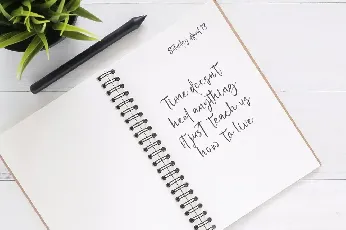 Saturday, April 13
Time doesn't
heal anything.
it just teach us
how to live